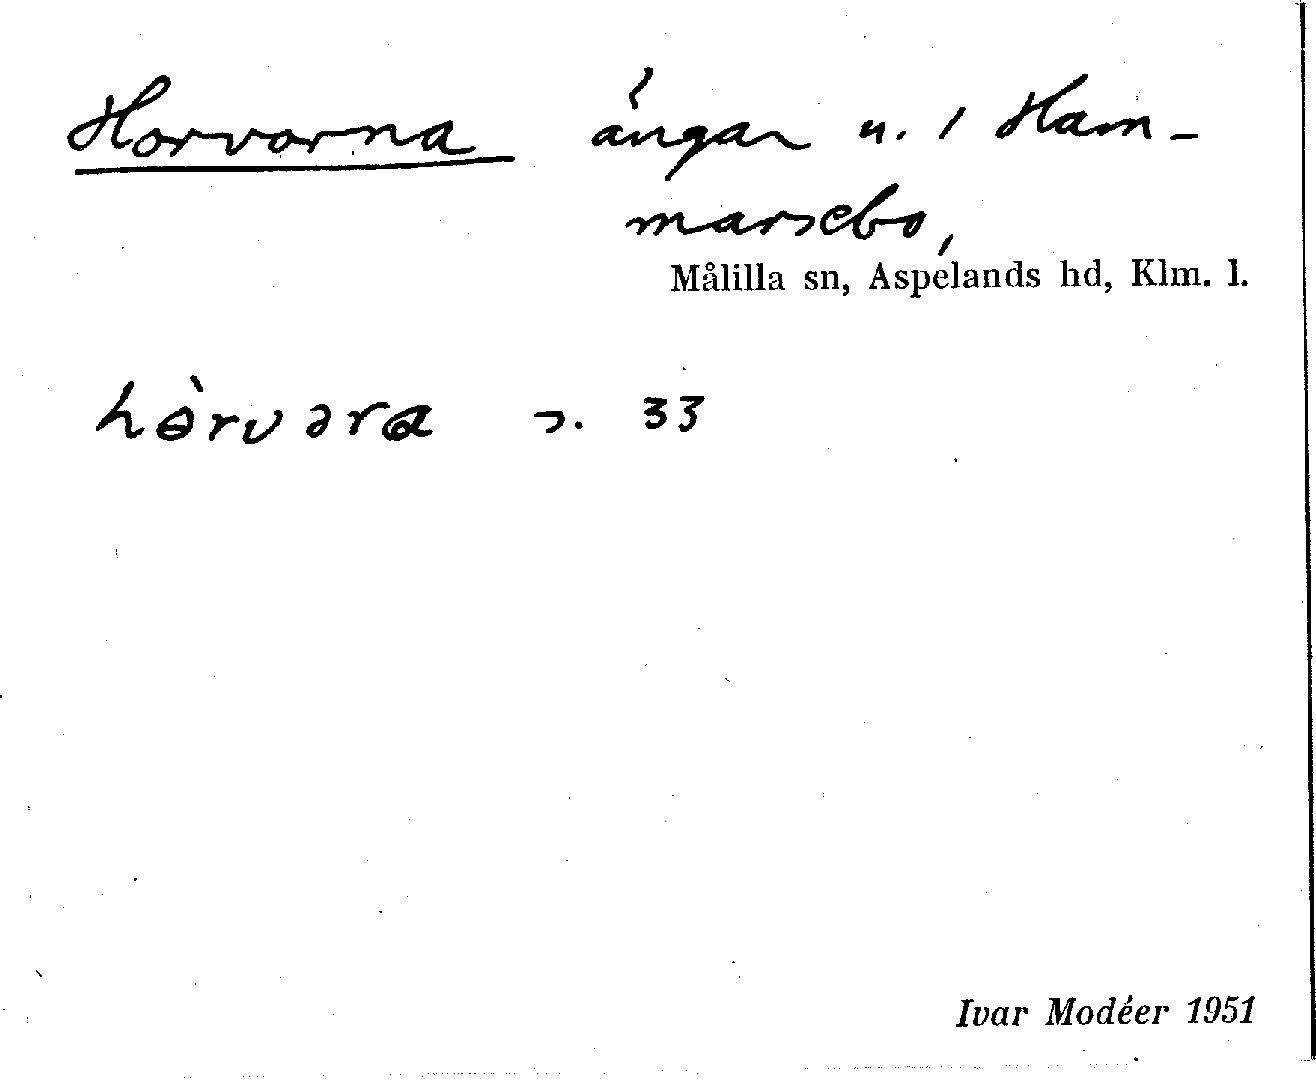 Horvorna ängar u. 1 Ham-
marsebo,
Målilla sn, Aspelands hd, Klm. l.
hɵ̀rvəra s. 33
Ivar Modéer 1951